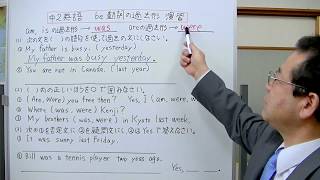 中2英語 be動詞の過去形 演習
am, isの過去形 → was areの過去形 → were
(1) 次の文を( )の語句を使って過去の文にしなさい。
① My father is busy. (yesterday)
My father was busy yesterday.
② You are not in Canada. (last year)
(2) ( )の正しいほうを○で囲みなさい。
① (Are, Were) you free then? Yes, I (am, were,
② Where (was, were) Kenji?
③ My brothers (was, were) in Kyoto last week.
(3) 次の①を否定文に ②を疑問文に
Yesで答えなさい。
① It was sunny last Friday.
② Bill was a tennis player two years ago.
Yes,